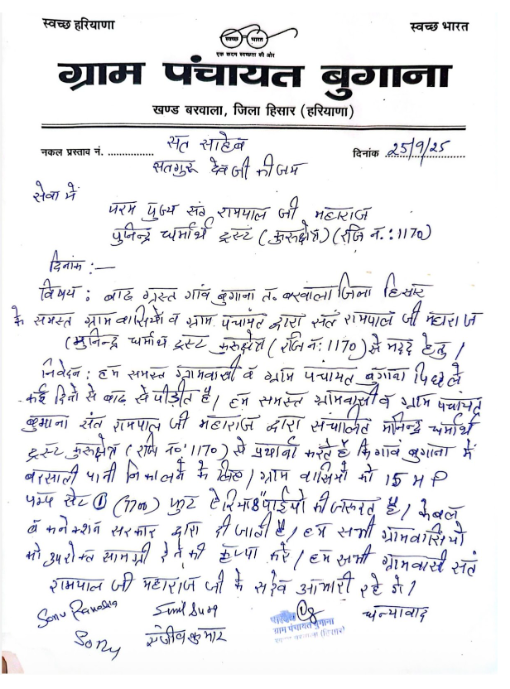 स्वच्छ हरियाणा
स्वच्छ भारत
स्वच्छ भारत
एक कदम स्वच्छता की ओर
ग्राम पंचायत बुगाना
खण्ड बरवाला, जिला हिसार (हरियाणा)
नकल प्रस्ताव नं. ............... सत साहेब दिनांक 25/9/25
सतगुरु देव जी की जय
सेवा में
परम पुज्य संत रामपाल जी महाराज
मुनिन्द्र धर्मार्थ ट्रस्ट (कुरुक्षेत्र) (रजि नं.: 1170)
दिनांक :—
विषय : बाढ ग्रस्त गांव बुगाना त. बरवाला जिला हिसार
के समस्त ग्रामवासियों व ग्राम पंचायत द्वारा संत रामपाल जी महाराज
(मुनिन्द्र धर्मार्थ ट्रस्ट कुरुक्षेत्र (रजि नं: 1170) से मदद हेतु।
निवेदन : हम समस्त ग्रामवासी व ग्राम पंचायत बुगाना पिछले
कई दिनो से बाढ से पीड़ीत है। हम समस्त ग्रामवासी व ग्राम पंचायत
बुगाना संत रामपाल जी महाराज द्वारा संचालित मुनिन्द्र धर्मार्थ
ट्रस्ट कुरुक्षेत्र (रजि नं० 1170) से प्रार्थना करते है कि गावं बुगाना में
बरसाती पानी निकालने के लिए। ग्राम वासियो को 15 HP
पम्प सेट ① (7700) फुट 8" पाईपो की जरूरत है। केबल
व कनेक्शन सरकार द्वारा दी जाती है। हम सभी ग्रामवासियो
को उपरोक्त सामग्री देने की कृप्पा करे। हम सभी ग्रामवासी संत
रामपाल जी महाराज जी के सदैव आभारी रहे गे।
धन्यावाद
Sonu
संजीव कुमार
ग्राम पंचायत बुगाना